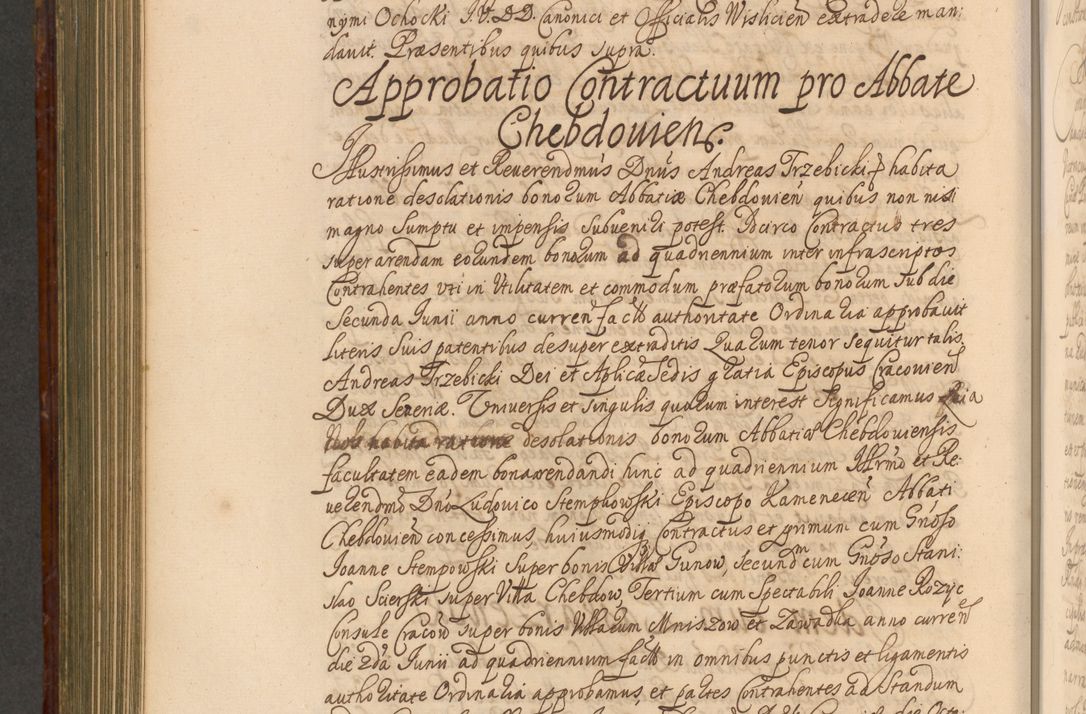 nymi Ochocki J.V.D.D. Canonici et Officialis Wislicień extradere man:
davit. Præsentibus quibus supra.
Approbatio Contractuum pro Abbate
Chebdovien.
Illustrissimus et Reverendmus Dnus Andreas Trzebicki habita
ratione desolationis bonorum Abbatiæ Chebdovień quibus non nisi
magno Sumptu et impensis Subveniri potest. Idcirco Contractus tres
super arendam eorundem bonorum ad quadriennium inter infrascriptos
Contrahentes uti in Utilitatem et commodum præfatorum bonorum Sub die
Secunda Junii anno curreń factos authoritate Ordinaria approbavit
literis Suis patentibus desuper extraditis Quarum tenor Sequitur talis.
Andreas Trzebicki Dei et Aplicæ Sedis gratia Episcopus Cracovień
Dux Severiæ. Universis et Singulis quorum interest Significamus Quia
Nos habita ratione desolationis bonorum Abbatiæ Chebdoviensis
facultatem eadem bona arendandi hinc ad quadriennium Illrmo et Re:
verendmo Dno Ludovico Stempkowski Episcopo Kameneceń Abbati
Chebdovień concessimus, huiusmodiq Contractus et primum cum Gnoso
Joanne Stempowski Super bonis Villæ Gunow, Secundum cum Gnoso Stani:
slao Scierski super Villa Chebdow, Tertium cum Spectabili Joanne Rozyc
Consule Cracow super bonis Villarum, Mniszow et Zawadla anno curreń
die 2da Junii ad quadriennium factos in omnibus punctis et ligamentis
authoritate Ordinaria approbamus, et partes Contrahentes ad Standum